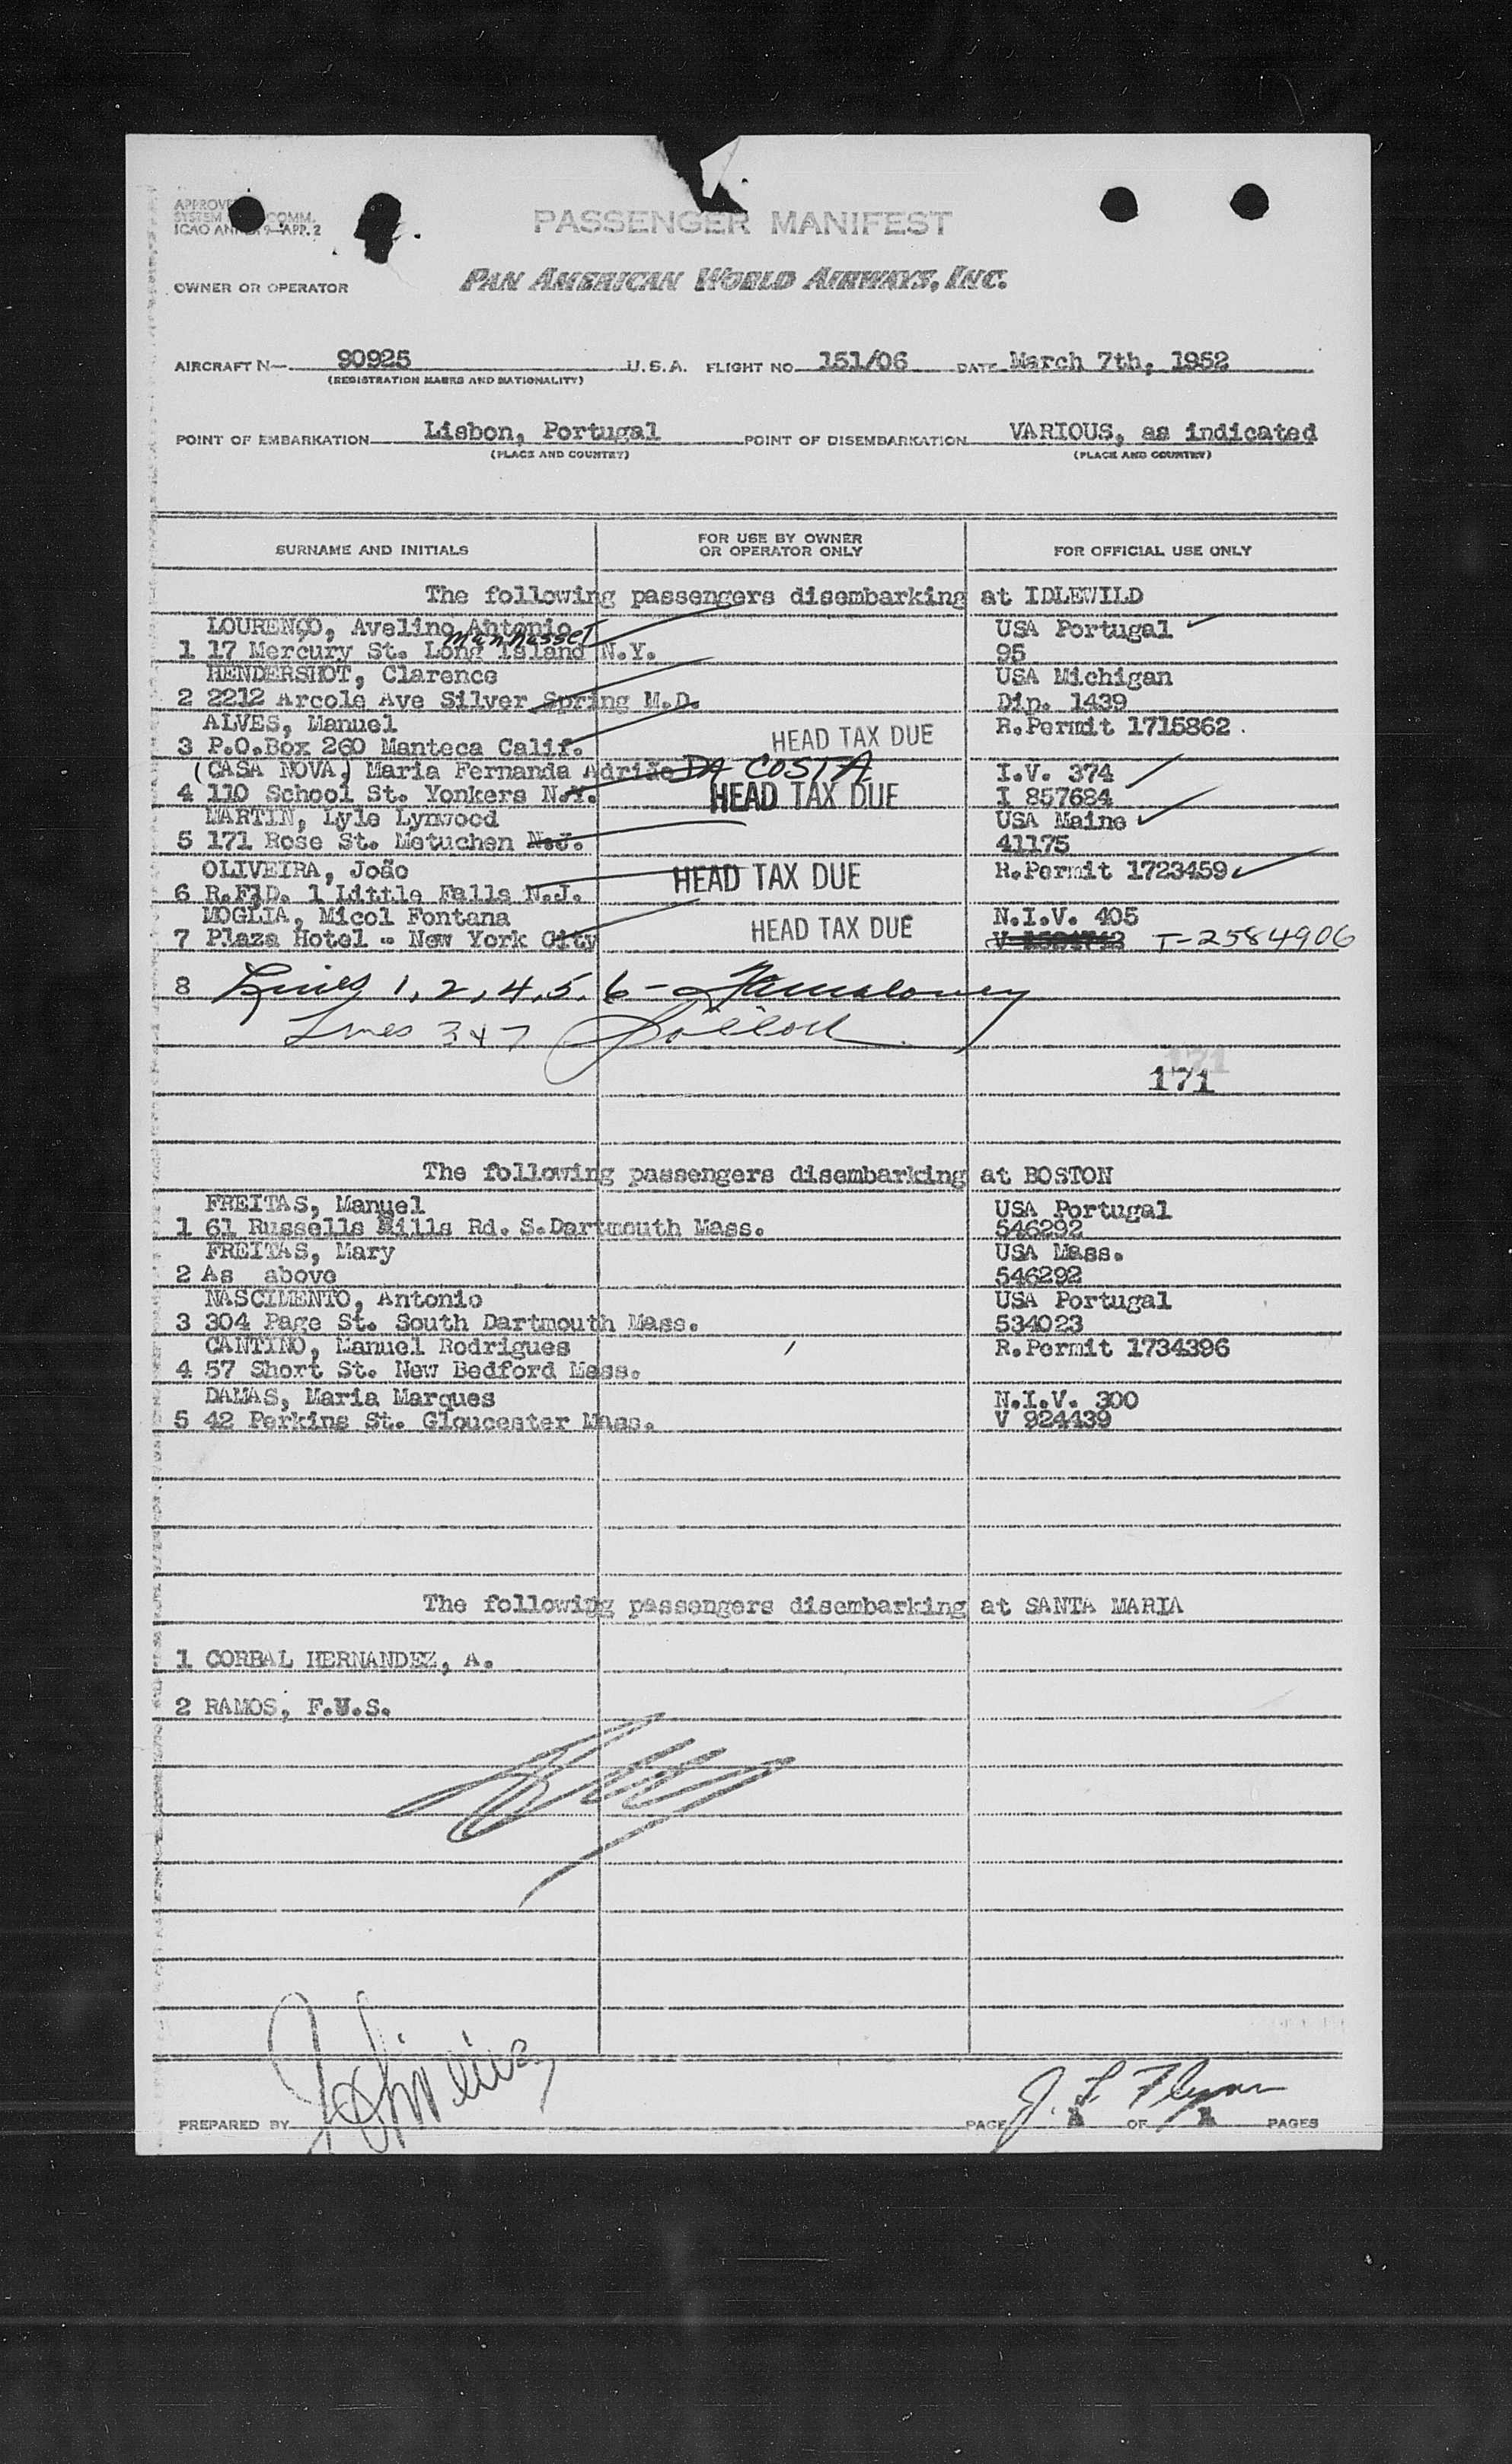 PASSENGER MANIFEST
ICAO ANNEX 9—APP. 2
OWNER OR OPERATOR
PAN AMERICAN WORLD AIRWAYS, INC.
AIRCRAFT N— 90925 U.S.A. FLIGHT NO. 151/06 DATE March 7th, 1952
(REGISTRATION MARKS AND NATIONALITY)
POINT OF EMBARKATION Lisbon, Portugal POINT OF DISEMBARKATION VARIOUS, as indicated
(PLACE AND COUNTRY) (PLACE AND COUNTRY)
SURNAME AND INITIALS FOR USE BY OWNER OR OPERATOR ONLY FOR OFFICIAL USE ONLY
The following passengers disembarking at IDLEWILD
LOURENÇO, Avelino Antonio USA Portugal
Manhasset
1 17 Mercury St. Long Island N.Y. 95
HENDERSHOT, Clarence USA Michigan
2 2212 Arcole Ave Silver Spring M.D. Dip. 1439
ALVES, Manuel R.Permit 1715862
3 P.O.Box 260 Manteca Calif. HEAD TAX DUE
(CASA NOVA) Maria Fernanda Adrião DA COSTA I.V. 374
4 110 School St. Yonkers N.Y. HEAD TAX DUE I 857684
MARTIN, Lyle Lynwood USA Maine
5 171 Rose St. Metuchen N.J. 41175
OLIVEIRA, João HEAD TAX DUE R.Permit 1723459
6 R.F.D. 1 Little Falls N.J.
MOGLIA, Micol Fontana N.I.V. 405
7 Plaza Hotel - New York City HEAD TAX DUE T-2584906
8 Lines 1, 2, 4, 5, 6 -
Lines 3 & 7
171
171
The following passengers disembarking at BOSTON
FREITAS, Manuel USA Portugal
1 61 Russells Mills Rd. S.Dartmouth Mass. 546292
FREITAS, Mary USA Mass.
2 As above 546292
NASCIMENTO, Antonio USA Portugal
3 304 Page St. South Dartmouth Mass. 534023
CANTINO, Manuel Rodrigues R.Permit 1734396
4 57 Short St. New Bedford Mass.
DAMAS, Maria Marques N.I.V. 300
5 42 Perkins St. Gloucester Mass. V 924439
The following passengers disembarking at SANTA MARIA
1 CORRAL HERNANDEZ, A.
2 RAMOS, F.U.S.
J. L. Flynn
PREPARED BY PAGE OF PAGES